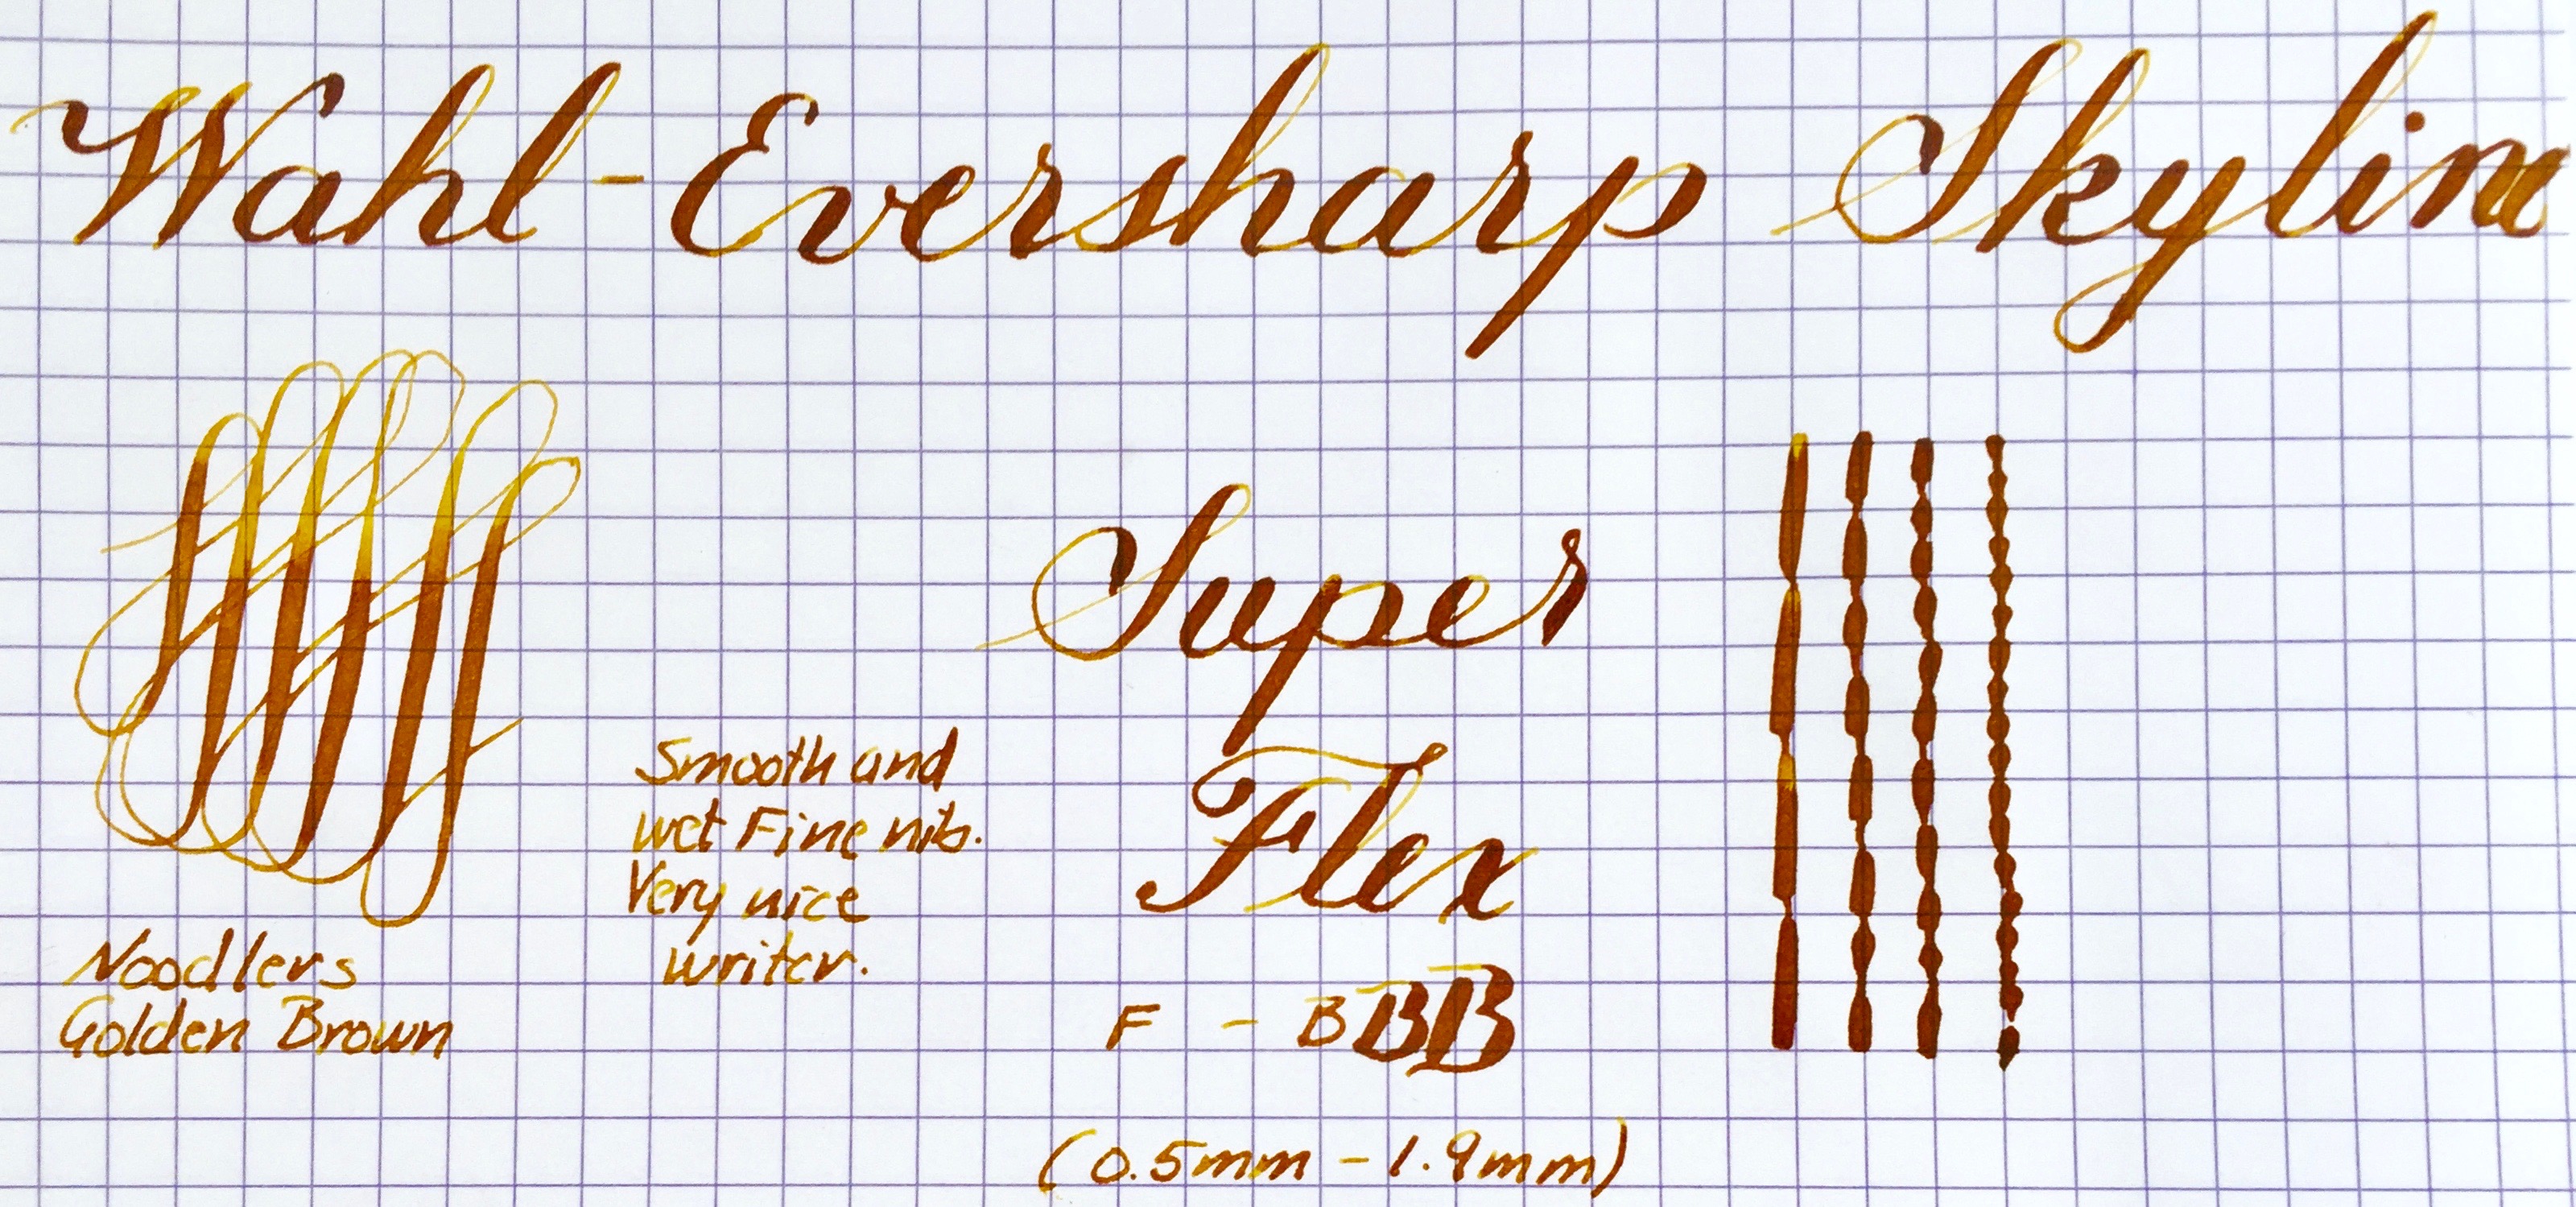 Wahl-Eversharp Skyline
Super
Flex
F - BBB
(0.5mm - 1.9mm)
Smooth and
wet Fine nib.
Very nice
writer.
Noodlers
Golden Brown